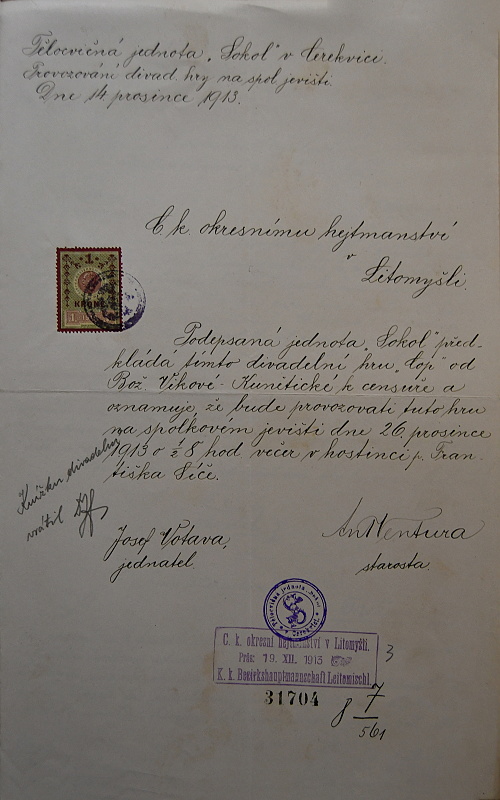 Tělocvičná jednota „Sokol" v Cerekvici.
Provozování divad. hry na spol. jevišti.
Dne 14 prosince 1913.
C. k. okresnímu hejtmanství
v
Litomyšli.
1
KRONE
Podepsaná jednota „Sokol" před-
kládá tímto divadelní hru „Cop" od
Bož. Vikové-Kunětické k censuře a
oznamuje, že bude provozovati tuto hru
na spolkovém jevišti dne 26. prosince
1913 o ½ 8 hod večer v hostinci p. Fran-
tiška
Knížku divadelní
vrátil
Josef Votava,
jednatel.
Ant Ventura
starosta.
Tělocvičná jednota Sokol
C. k. okresní hejtmanství v Litomyšli.
Präs: 19. XII. 1913
K. k. Bezirkshauptmannschaft Leitomischl.
31704
3
8 7
561